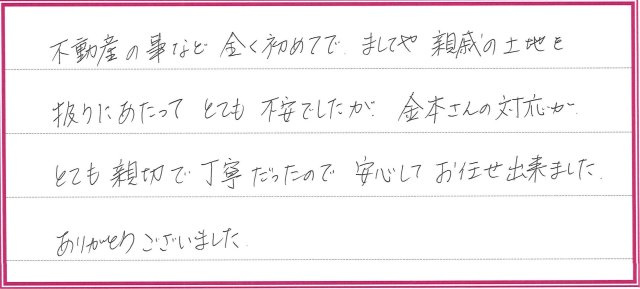 不動産の事など 全く初めてで、ましてや 親戚の土地を
扱うにあたって とても 不安でしたが、金本さんの対応が
とても 親切で 丁寧だったので 安心して お任せ出来ました。
ありがとうございました。